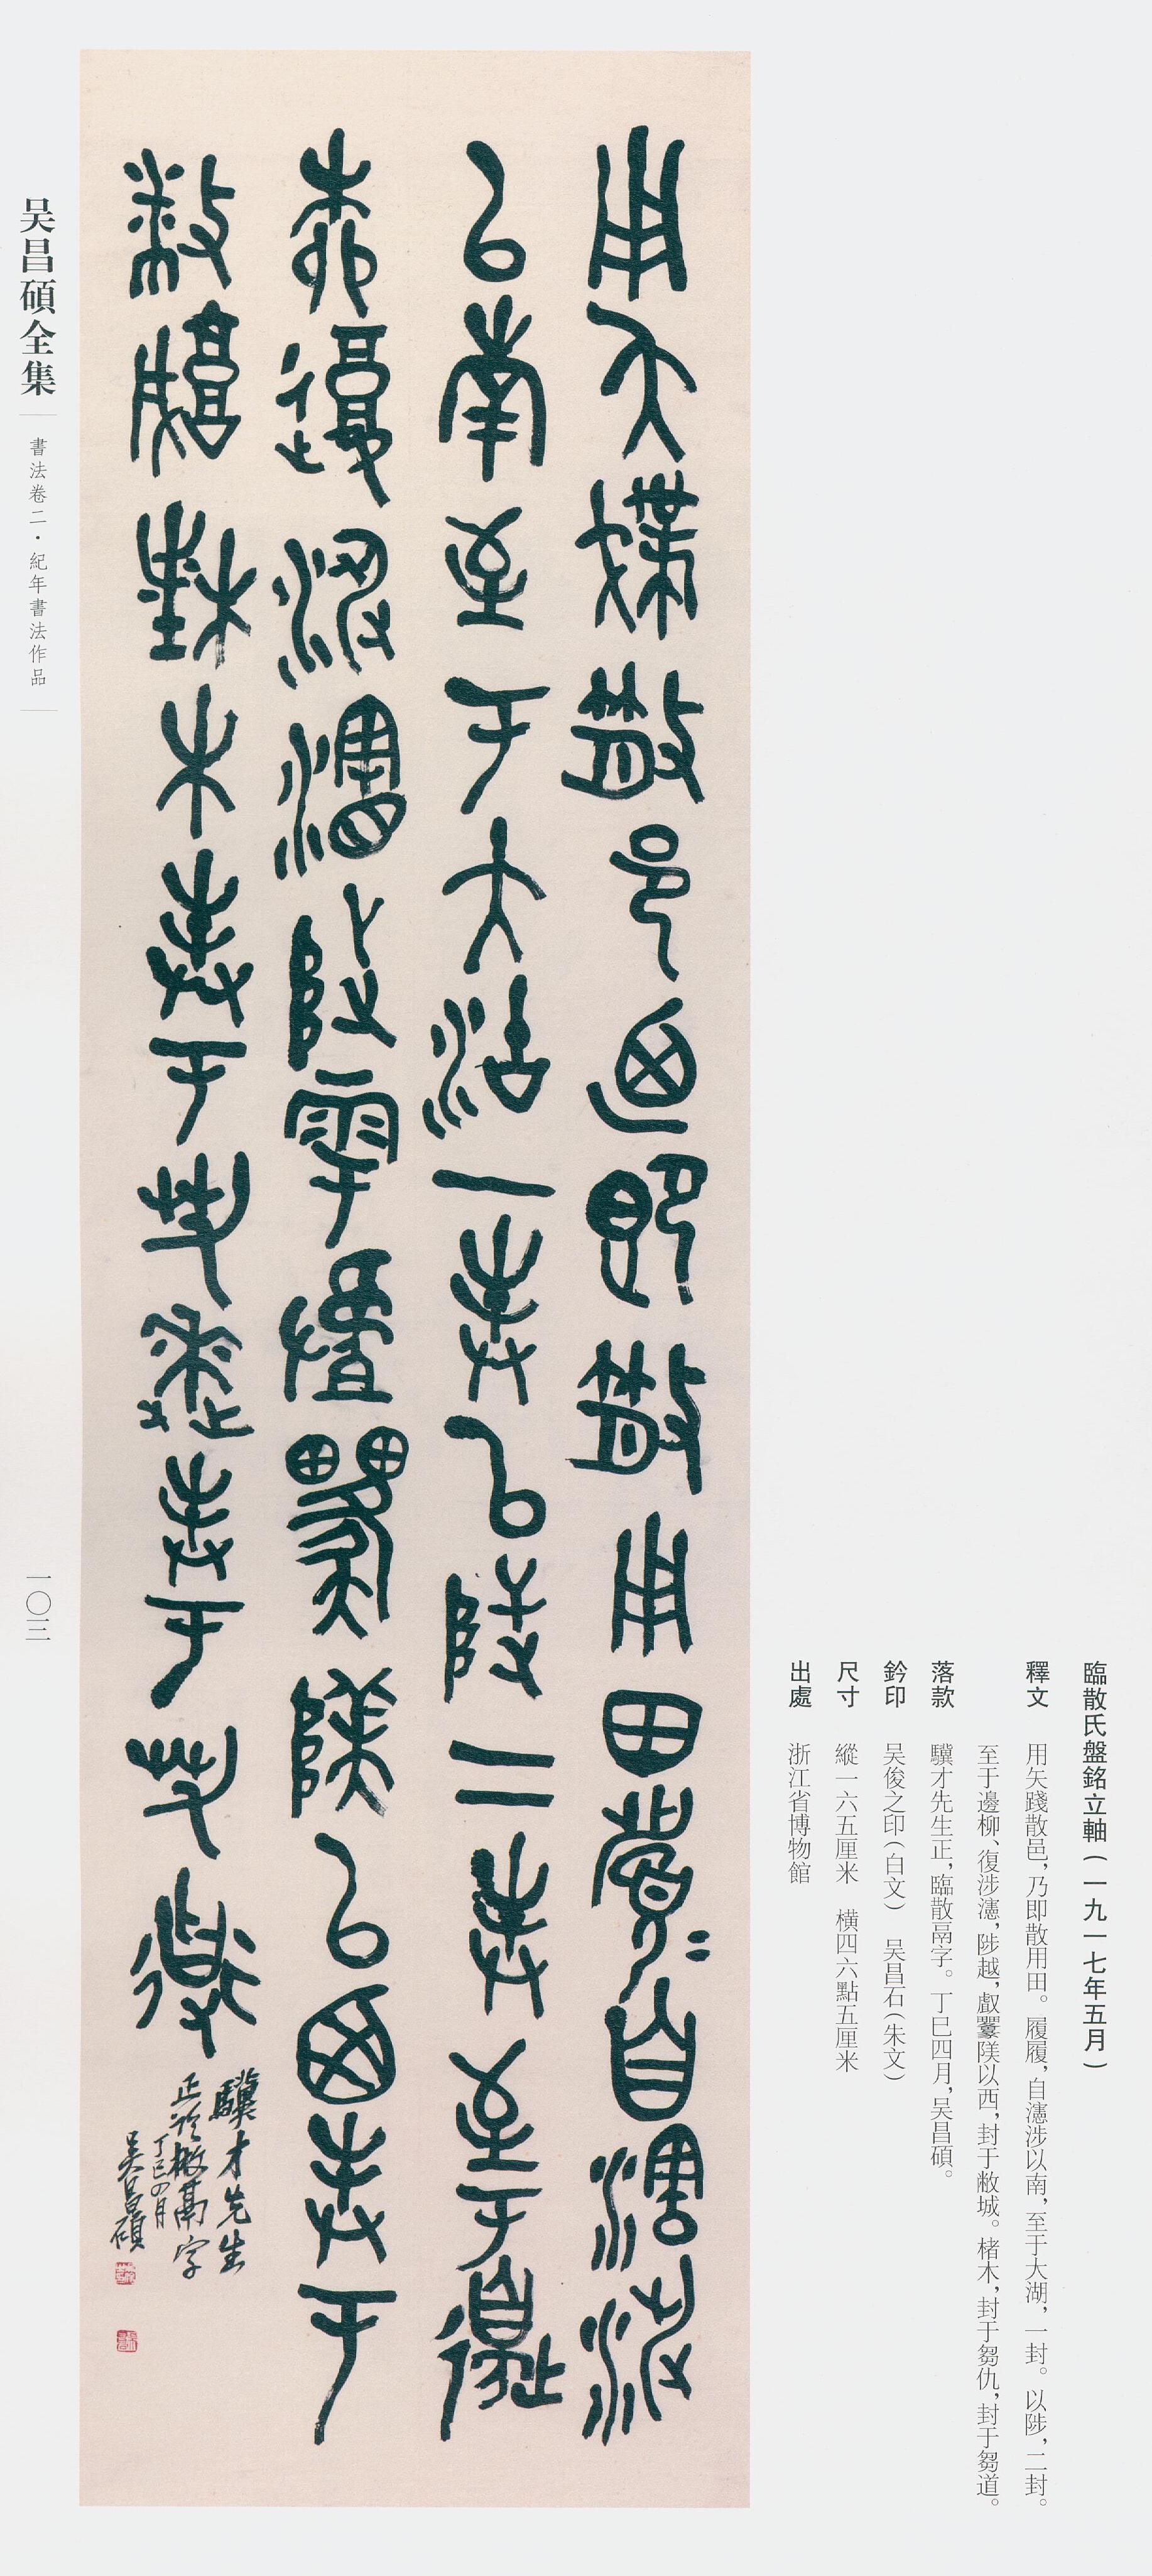 臨散氏盤銘立軸(一九一七年五月)
釋文 用矢踐散邑,乃即散用田。履履,自瀗涉以南,至于大湖,一封。以陟,二封。
至于邊柳、復涉瀗,陟越,䖒
㠱以西,封于敝城。楮木,封于芻仇,封于芻道。
落款 驥才先生正,臨散鬲字。丁巳四月,吴昌碩。
鈐印 吴俊之印(白文) 吴昌石(朱文)
尺寸 縱一六五厘米 橫四六點五厘米
出處 浙江省博物館
用矢散邑乃即散用田自瀗涉
以南至于大沽一封以陟二封至于邊
柳復涉瀗陟以西封于
敝城楮木封于芻逨封于芻
驥才先生
正臨散鬲字
丁巳四月
吴昌碩
吴昌碩全集
書法卷二·紀年書法作品
一〇三